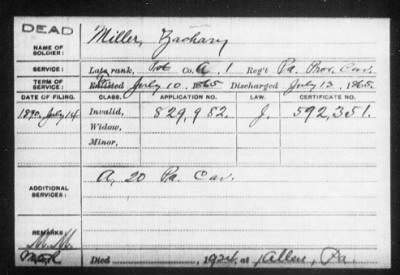 DEAD
NAME OF SOLDIER:
Miller, Zachary
SERVICE:
Late rank, Pvt Co. A, 1 Reg't Pa. Prov. Cav.
TERM OF SERVICE:
Enlisted July 10, 1865 Discharged July 13, 1865.
DATE OF FILING. CLASS. APPLICATION NO. LAW. CERTIFICATE NO.
1890. July 14 Invalid, 829.982. J. 592,351.
Widow,
Minor,
ADDITIONAL SERVICES:
A, 20 Pa. Cav.
REMARKS:
Died 1924, at Allen, Pa.